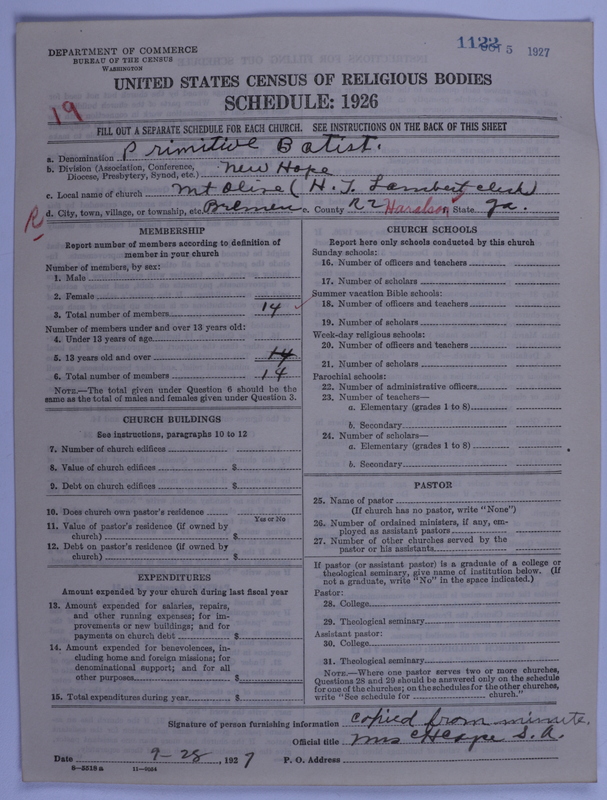 DEPARTMENT OF COMMERCE
BUREAU OF THE CENSUS
WASHINGTON
1133
OCT 5 1927
UNITED STATES CENSUS OF RELIGIOUS BODIES
SCHEDULE: 1926
19
FILL OUT A SEPARATE SCHEDULE FOR EACH CHURCH. SEE INSTRUCTIONS ON THE BACK OF THIS SHEET
a. Denomination Primitive Batist.
b. Division (Association, Conference, Diocese, Presbytery, Synod, etc.) New Hope
c. Local name of church Mt Olive (H. T. Lambert clerk)
R d. City, town, village, or township, etc. Bremen e. County R2 Haralson f. State Ga.
MEMBERSHIP
Report number of members according to definition of
member in your church
Number of members, by sex:
1. Male
2. Female
3. Total number of members 14
Number of members under and over 13 years old:
4. Under 13 years of age
5. 13 years old and over 14
6. Total number of members 14
NOTE.—The total given under Question 6 should be the
same as the total of males and females given under Question 3.
CHURCH BUILDINGS
See instructions, paragraphs 10 to 12
7. Number of church edifices
8. Value of church edifices $
9. Debt on church edifices $
10. Does church own pastor's residence
Yes or No
11. Value of pastor's residence (if owned by
church) $
12. Debt on pastor's residence (if owned by
church) $
EXPENDITURES
Amount expended by your church during last fiscal year
13. Amount expended for salaries, repairs,
and other running expenses; for im-
provements or new buildings; and for
payments on church debt $
14. Amount expended for benevolences, in-
cluding home and foreign missions; for
denominational support; and for all
other purposes $
15. Total expenditures during year $
CHURCH SCHOOLS
Report here only schools conducted by this church
Sunday schools:
16. Number of officers and teachers
17. Number of scholars
Summer vacation Bible schools:
18. Number of officers and teachers
19. Number of scholars
Week-day religious schools:
20. Number of officers and teachers
21. Number of scholars
Parochial schools:
22. Number of administrative officers
23. Number of teachers—
a. Elementary (grades 1 to 8)
b. Secondary
24. Number of scholars—
a. Elementary (grades 1 to 8)
b. Secondary
PASTOR
25. Name of pastor
(If church has no pastor, write "None")
26. Number of ordained ministers, if any, em-
ployed as assistant pastors
27. Number of other churches served by the
pastor or his assistants
If pastor (or assistant pastor) is a graduate of a college or
theological seminary, give name of institution below. (If
not a graduate, write "No" in the space indicated.)
Pastor:
28. College
29. Theological seminary
Assistant pastor:
30. College
31. Theological seminary
NOTE.—Where one pastor serves two or more churches,
Questions 28 and 29 should be answered only on the schedule
for one of the churches; on the schedules for the other churches,
write "See schedule for church."
Signature of person furnishing information copied from minute.
Official title Mrs S. A.
Date 9-28, 1927 P. O. Address
8-5518a 11-9024